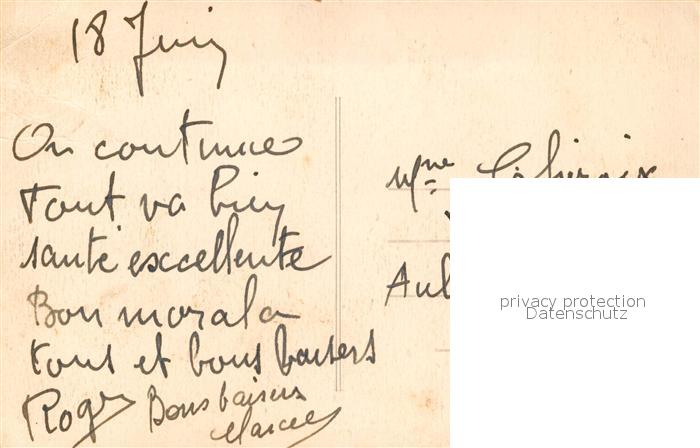 18 Juin
On continue
Tout va bien
santé excellente
Bon moral a
tous et bons baisers
Roger Bons baisers
Marcel
Mme
privacy protection
Datenschutz